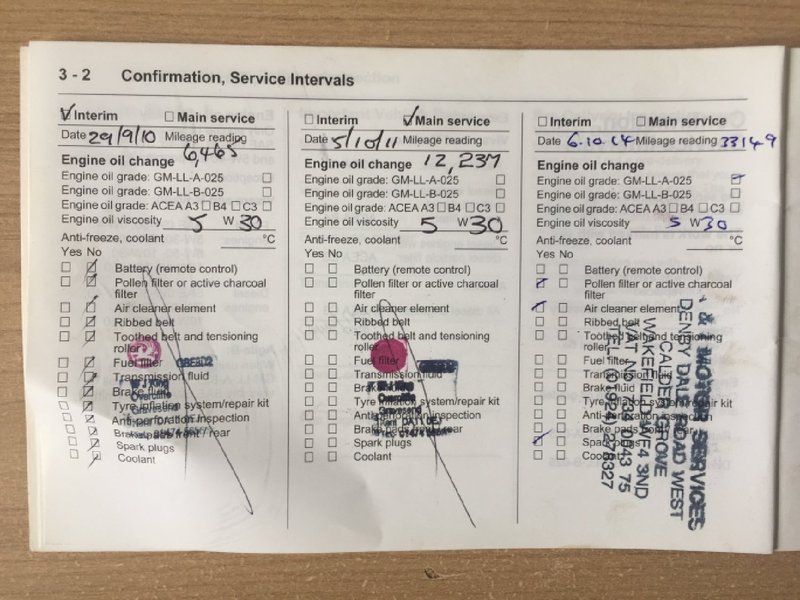 3 - 2 Confirmation, Service Intervals
Interim Main service
Date 29/9/10 Mileage reading
6,465
Engine oil change
Engine oil grade: GM-LL-A-025
Engine oil grade: GM-LL-B-025
Engine oil grade: ACEA A3 B4 C3
Engine oil viscosity 5 W 30
Anti-freeze, coolant °C
Yes No
Battery (remote control)
Pollen filter or active charcoal
filter
Air cleaner element
Ribbed belt
Toothed belt and tensioning
roller
Fuel filter
Transmission fluid
Brake fluid
Tyre inflation system/repair kit
Anti-perforation inspection
Brake pads front / rear
Spark plugs
Coolant
W J King
Gravesend
Interim Main service
Date 5/10/11 Mileage reading
Engine oil change 12,237
Engine oil grade: GM-LL-A-025
Engine oil grade: GM-LL-B-025
Engine oil grade: ACEA A3 B4 C3
Engine oil viscosity 5 W 30
Anti-freeze, coolant °C
Yes No
Battery (remote control)
Pollen filter or active charcoal
filter
Air cleaner element
Ribbed belt
Toothed belt and tensioning
roller
Fuel filter
Transmission fluid
Brake fluid
Tyre inflation system/repair kit
Anti-perforation inspection
Brake pads front / rear
Spark plugs
Coolant
Gravesend
Interim Main service
Date 6.10.14 Mileage reading 33149
Engine oil change
Engine oil grade: GM-LL-A-025
Engine oil grade: GM-LL-B-025
Engine oil grade: ACEA A3 B4 C3
Engine oil viscosity 5 W 30
Anti-freeze, coolant °C
Yes No
Battery (remote control)
Pollen filter or active charcoal
filter
Air cleaner element
Ribbed belt
Toothed belt and tensioning
roller
Fuel filter
Transmission fluid
Brake fluid
Tyre inflation system/repair kit
Anti-perforation inspection
Brake pads front / rear
Spark plugs
Coolant
MOTOR SERVICES
DENBY DALE ROAD WEST
CALDER GROVE
WAKEFIELD WF4 3ND